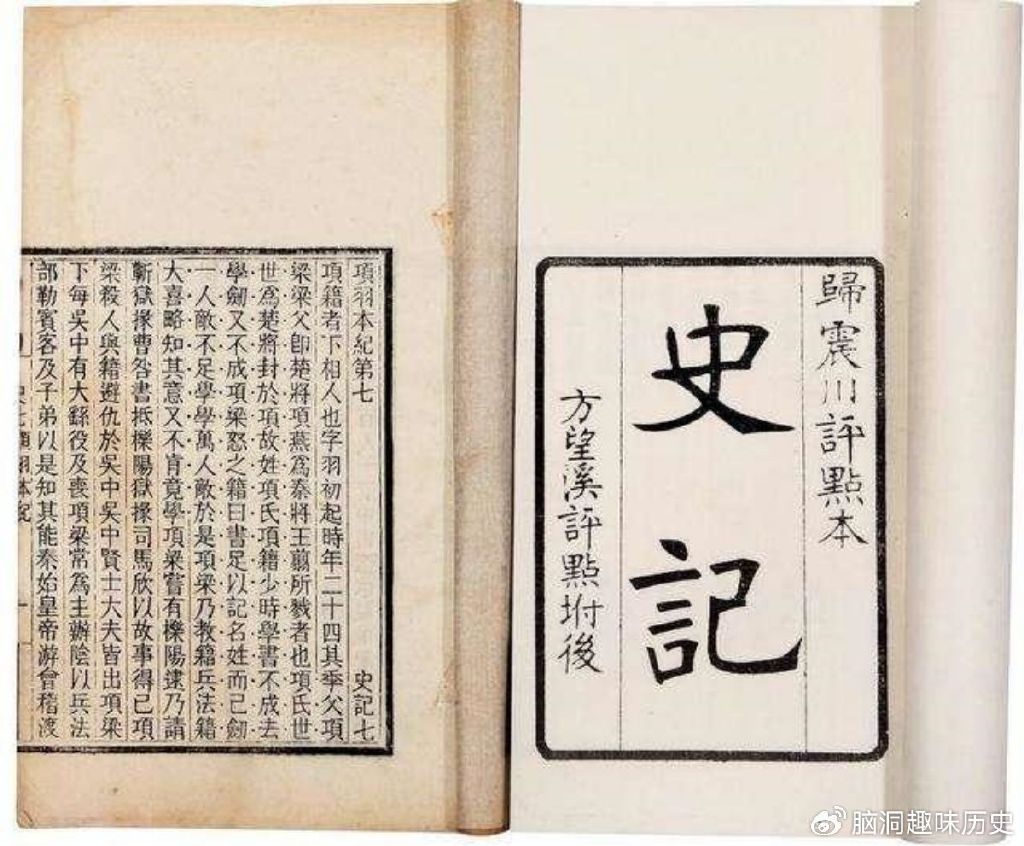 歸震川評點本
史記
方望溪評點坿後
項羽本紀第七 史記七
項籍者下相人也字羽初起時年二十四其季父項
梁梁父卽楚將項燕爲秦將王翦所戮者也項氏世
世爲楚將封於項故姓項氏項籍少時學書不成去
學劒又不成項梁怒之籍曰書足以記名姓而已劒
一人敵不足學學萬人敵於是項梁乃教籍兵法籍
大喜略知其意又不肯竟學項梁嘗有櫟陽逮乃請
蘄獄掾曹咎書抵櫟陽獄掾司馬欣以故事得已項
梁殺人與籍避仇於吳中吳中賢士大夫皆出項梁
下每吳中有大繇役及喪項梁常爲主辦陰以兵法
部勒賓客及子弟以是知其能秦始皇帝游會稽渡
脑洞趣味历史